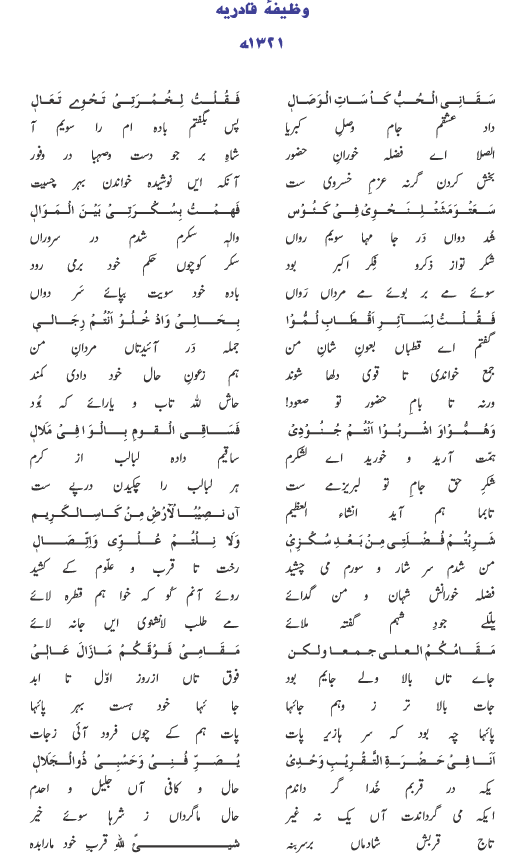 وظیفۂ قادریہ
۱۳۲۱ھ
سَقَانِی الْحُبُّ کَأْسَاتِ الْوِصَالِ فَقُلْتُ لِخَمْرَتِیْ نَحْوِیْ تَعَالِ
داد عشقم جام وصلِ کبریا پس بگفتم بادہ ام را سویم آ
الصلا اے فضلہ خورانِ حضور شاہ بر جو دست وصہبا در وفور
بخش کردن گرنہ عزمِ خسروی ست آنکہ ایں نوشیدہ خواندن بہر چیست
سَعَتْ وَمَشَتْ لِنَحْوِیْ فِیْ کُئُوْسٍ فَهِمْتُ بِسُکْرَتِیْ بَیْنَ الْمَوَالِ
شد دواں در جا مہا سویم رواں والہِ سکرم شدم در سروراں
شکر تواز ذکرو فکر اکبر بود سکر کوچوں حکم خود برمی رود
سوئے مے بر بوئے مے مرداں رواں بادہ خود سویت بپائے سر دواں
فَقُلْتُ لِسَآئِرِ الْاَقْطَابِ لُمُّوْا بِحَالِیْ وَادْخُلُوْا اَنْتُمْ رِجَالِیْ
گفتم اے قطباں بعونِ شانِ من جملہ در آئیدتاں مردانِ من
جمع خواندی تا قوی دلہا شوند ہم زعونِ حال خود دادی کمند
ورنہ تا بامِ حضور تو صعود! حاش للہ تاب و یارائے کہ بُود
وَهُمُّوْا وَاشْرَبُوْا اَنْتُمْ جُنُوْدِیْ فَسَاقِی الْقَوْمِ بِالْوَافِیْ مَلَالِ
ہمت آرید و خورید اے لشکرم ساقیم دادہ لبالب از کرم
شکرِ حق جامِ تو لبریزمے ست ہر لبالب را چکیدن درپے ست
تابما ہم آید انشاء العظیم آں نصیبُ الارضِ مِنْ کَاسِ الکریم
شَرِبْتُمْ فُضْلَتِیْ مِنْ بَعْدِ سُکْرِیْ وَلَا نِلْتُمْ عُلُوِّیْ وَاتِّصَالِ
من شدم سر شار و سورم می چشید رخت تا قرب و علوم کے کشید
فضلہ خورانش شہان و من گدائے روئے آنم گو کہ خوا ہم قطرہ لائے
یللے جودِ شہم گفتہ ملائے مے طلب لانشنوی ایں جانہ لائے
مَقَامُکُمُ الْعُلٰی جَمْعًا وَّلٰکِنْ مَقَامِیْ فَوْقَکُمْ مَازَالَ عَالِیْ
جاے تاں بالا ولے جایم بود فوق تاں ازروز اوّل تا ابد
جات بالا تر ز وہم جائہا جا نہا خود ہست بہر پائہا
پائہا چہ بود کہ سر ہازیر پات پات ہم کے چوں فرود آئی زجات
اَنَا فِیْ حَضْرَۃِ التَّقْرِیْبِ وَحْدِیْ یُصَرِّفُنِیْ وَحَسْبِیْ ذُوالْجَلَالِ
یکہ در قربم خدا گر داندم حال و کافی آں جلیل و احدم
ایکہ می گرداندت آں یک نہ غیر حال ماگرداں ز شرہا سوئے خیر
تاج قربش شادماں برسربنہ شیئً للہِ قربِ خود مارابدہ